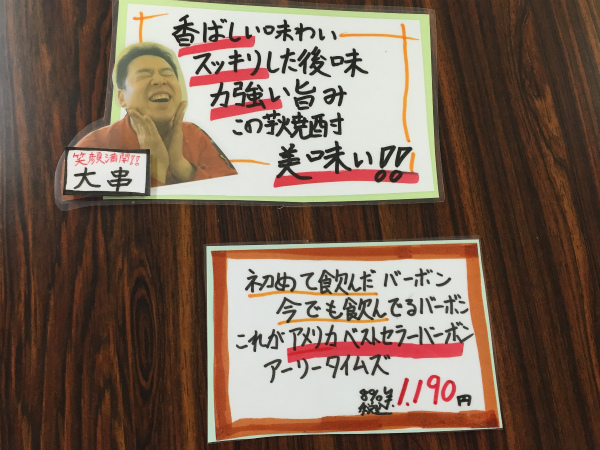 香ばしい味わい
スッキリした後味
力強い旨み
この芋焼酎
美味い!!
笑顔満開!!
大串
初めて飲んだバーボン
今でも飲んでるバーボン
これがアメリカベストセラーバーボン
アーリータイムズ
1,190円